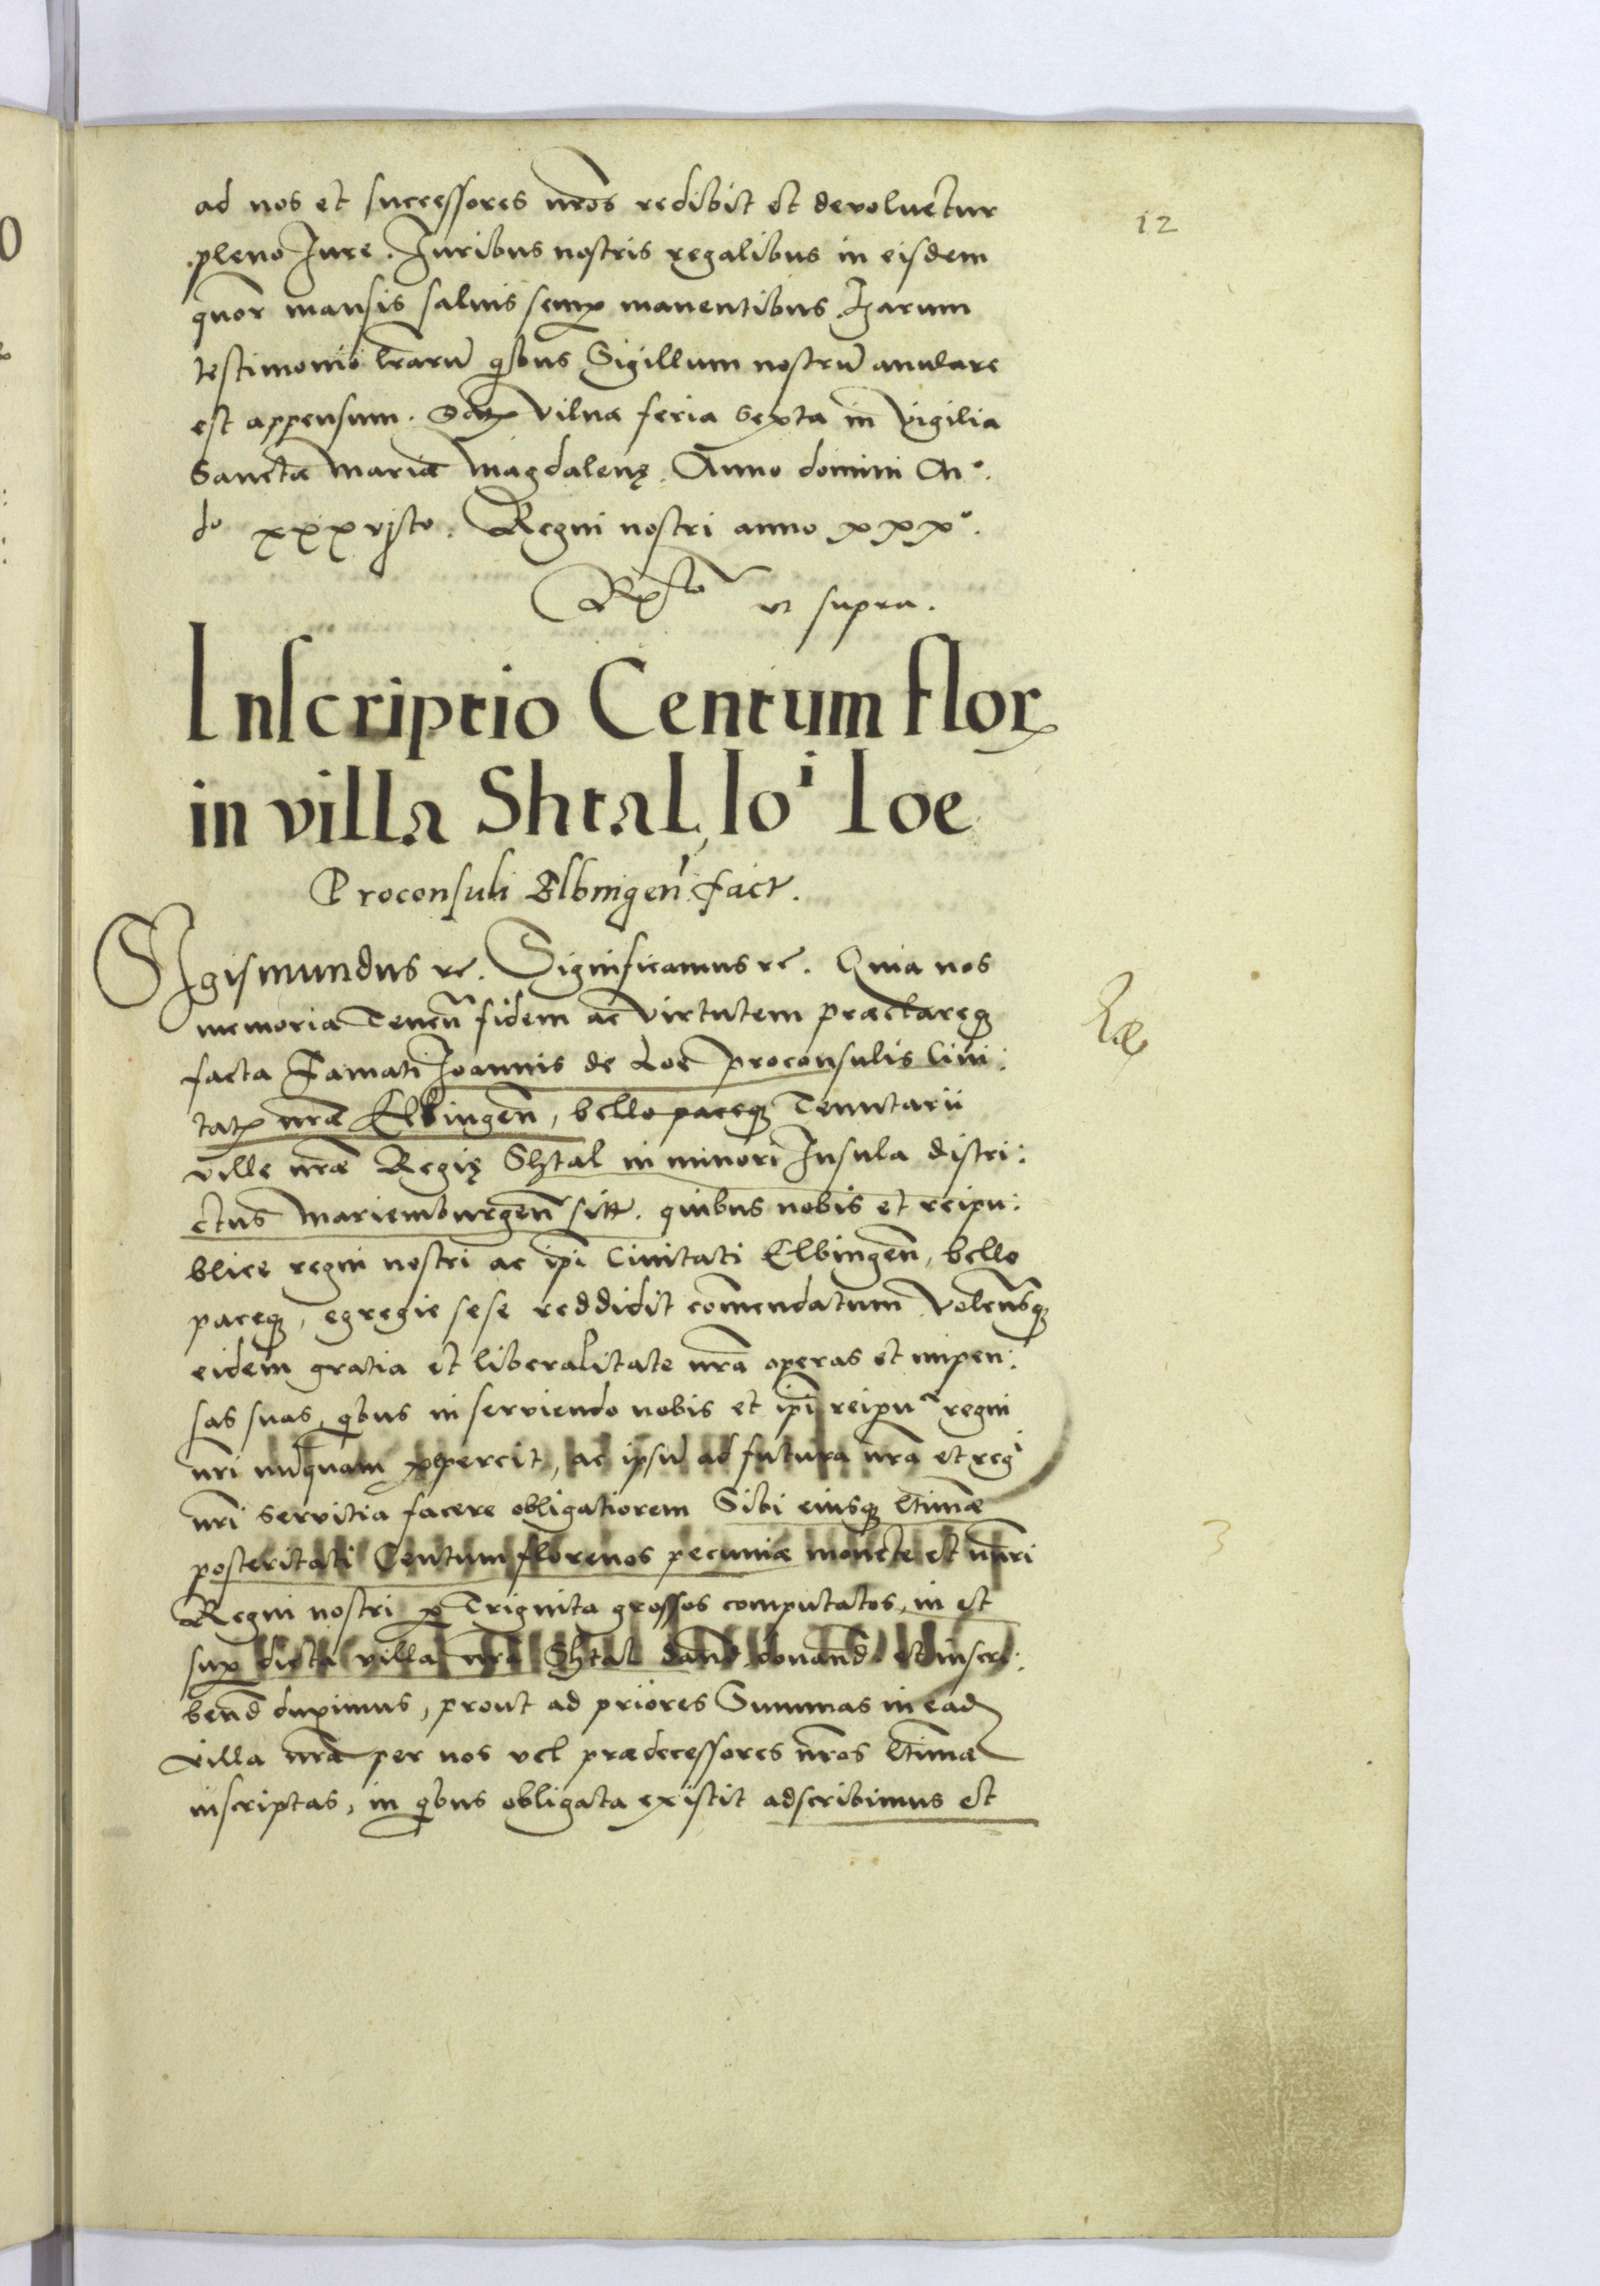 12
ad nos et successores nr̃os redibit et devoluetur
pleno Jure. Juribus nostris regalibus in eisdem
quor mansis saluis semꝑ manentibus. Harum
testimonio l̃rarũ qͥbus Sigillum nostrũ anulare
est appensum. Datꝭ Vilnæ feria Sexta in Vigilia
Sanctæ Mariæ Magdalenę. Anno domini Mº.
dº xxxvjto. Regni nostri anno xxxº.
Rlo ut supra.
Inscriptio Centum florꝭ
in villa Shtal, Ioⁱ Loe
Proconsuli Elbingeñ. fact.
SIgismundus ꝛc. Significamus ꝛc. Quia nos
memoria Teneñ fidem ac Virtutem præclareqꝫ
facta Famati Joannis de Loe proconsulis Ciui:
tatꝭ nr̃æ Elbingeñ, bello paceqꝫ Tenutarii
ville nr̃æ Regię Shtal in minori Insula distri:
ctus Mariemburgeñ sitt. quibus nobis et reipu:
blice regni nostri ac ip̃i Ciuitati Elbingeñ, bello
paceqꝫ, egregie sese reddidit com̃endatum Volentesqꝫ
eidem gratia et liberalitate nr̃a operas et impen:
sas suas, qͥbus in serviendo nobis et ip̃i reipuᶜ regni
nr̃i nũquam ꝑpercit, ac ipsũ ad futura nr̃a et regⁱ
nr̃i servitia facere obligatiorem Sibi eiusqꝫ l̃timæ
posteritati Centum florenos pecuniæ monete et nũeri
Regni nostri ꝑ Triginta grossos computatos, in et
suꝑ dicta villa nr̃a Shtal dand. donand. et inscri:
bend̃ duximus, prout ad priores Summas in ead
Villa nr̃a per nos vel prædecessores nr̃os l̃timæ
inscriptas, in qͥbus obligata existit adscribimus et
3